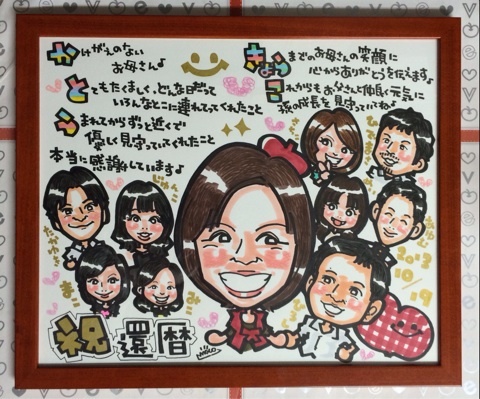 かけがえのない
お母さん♪
とてもたくましく、どんな日だって
いろんなとこに連れてってくれたこと
うまれてからずっと近くで
優しく見守っててくれたこと
本当に感謝しています♪
きょうまでのお母さんの笑顔に
心からありがとうを伝えます♪
これからもお父さんと仲良く元気に
孫の成長を見守っていてね♪
じゅんこ
まこ
みこ
2013
10/19
祝還暦